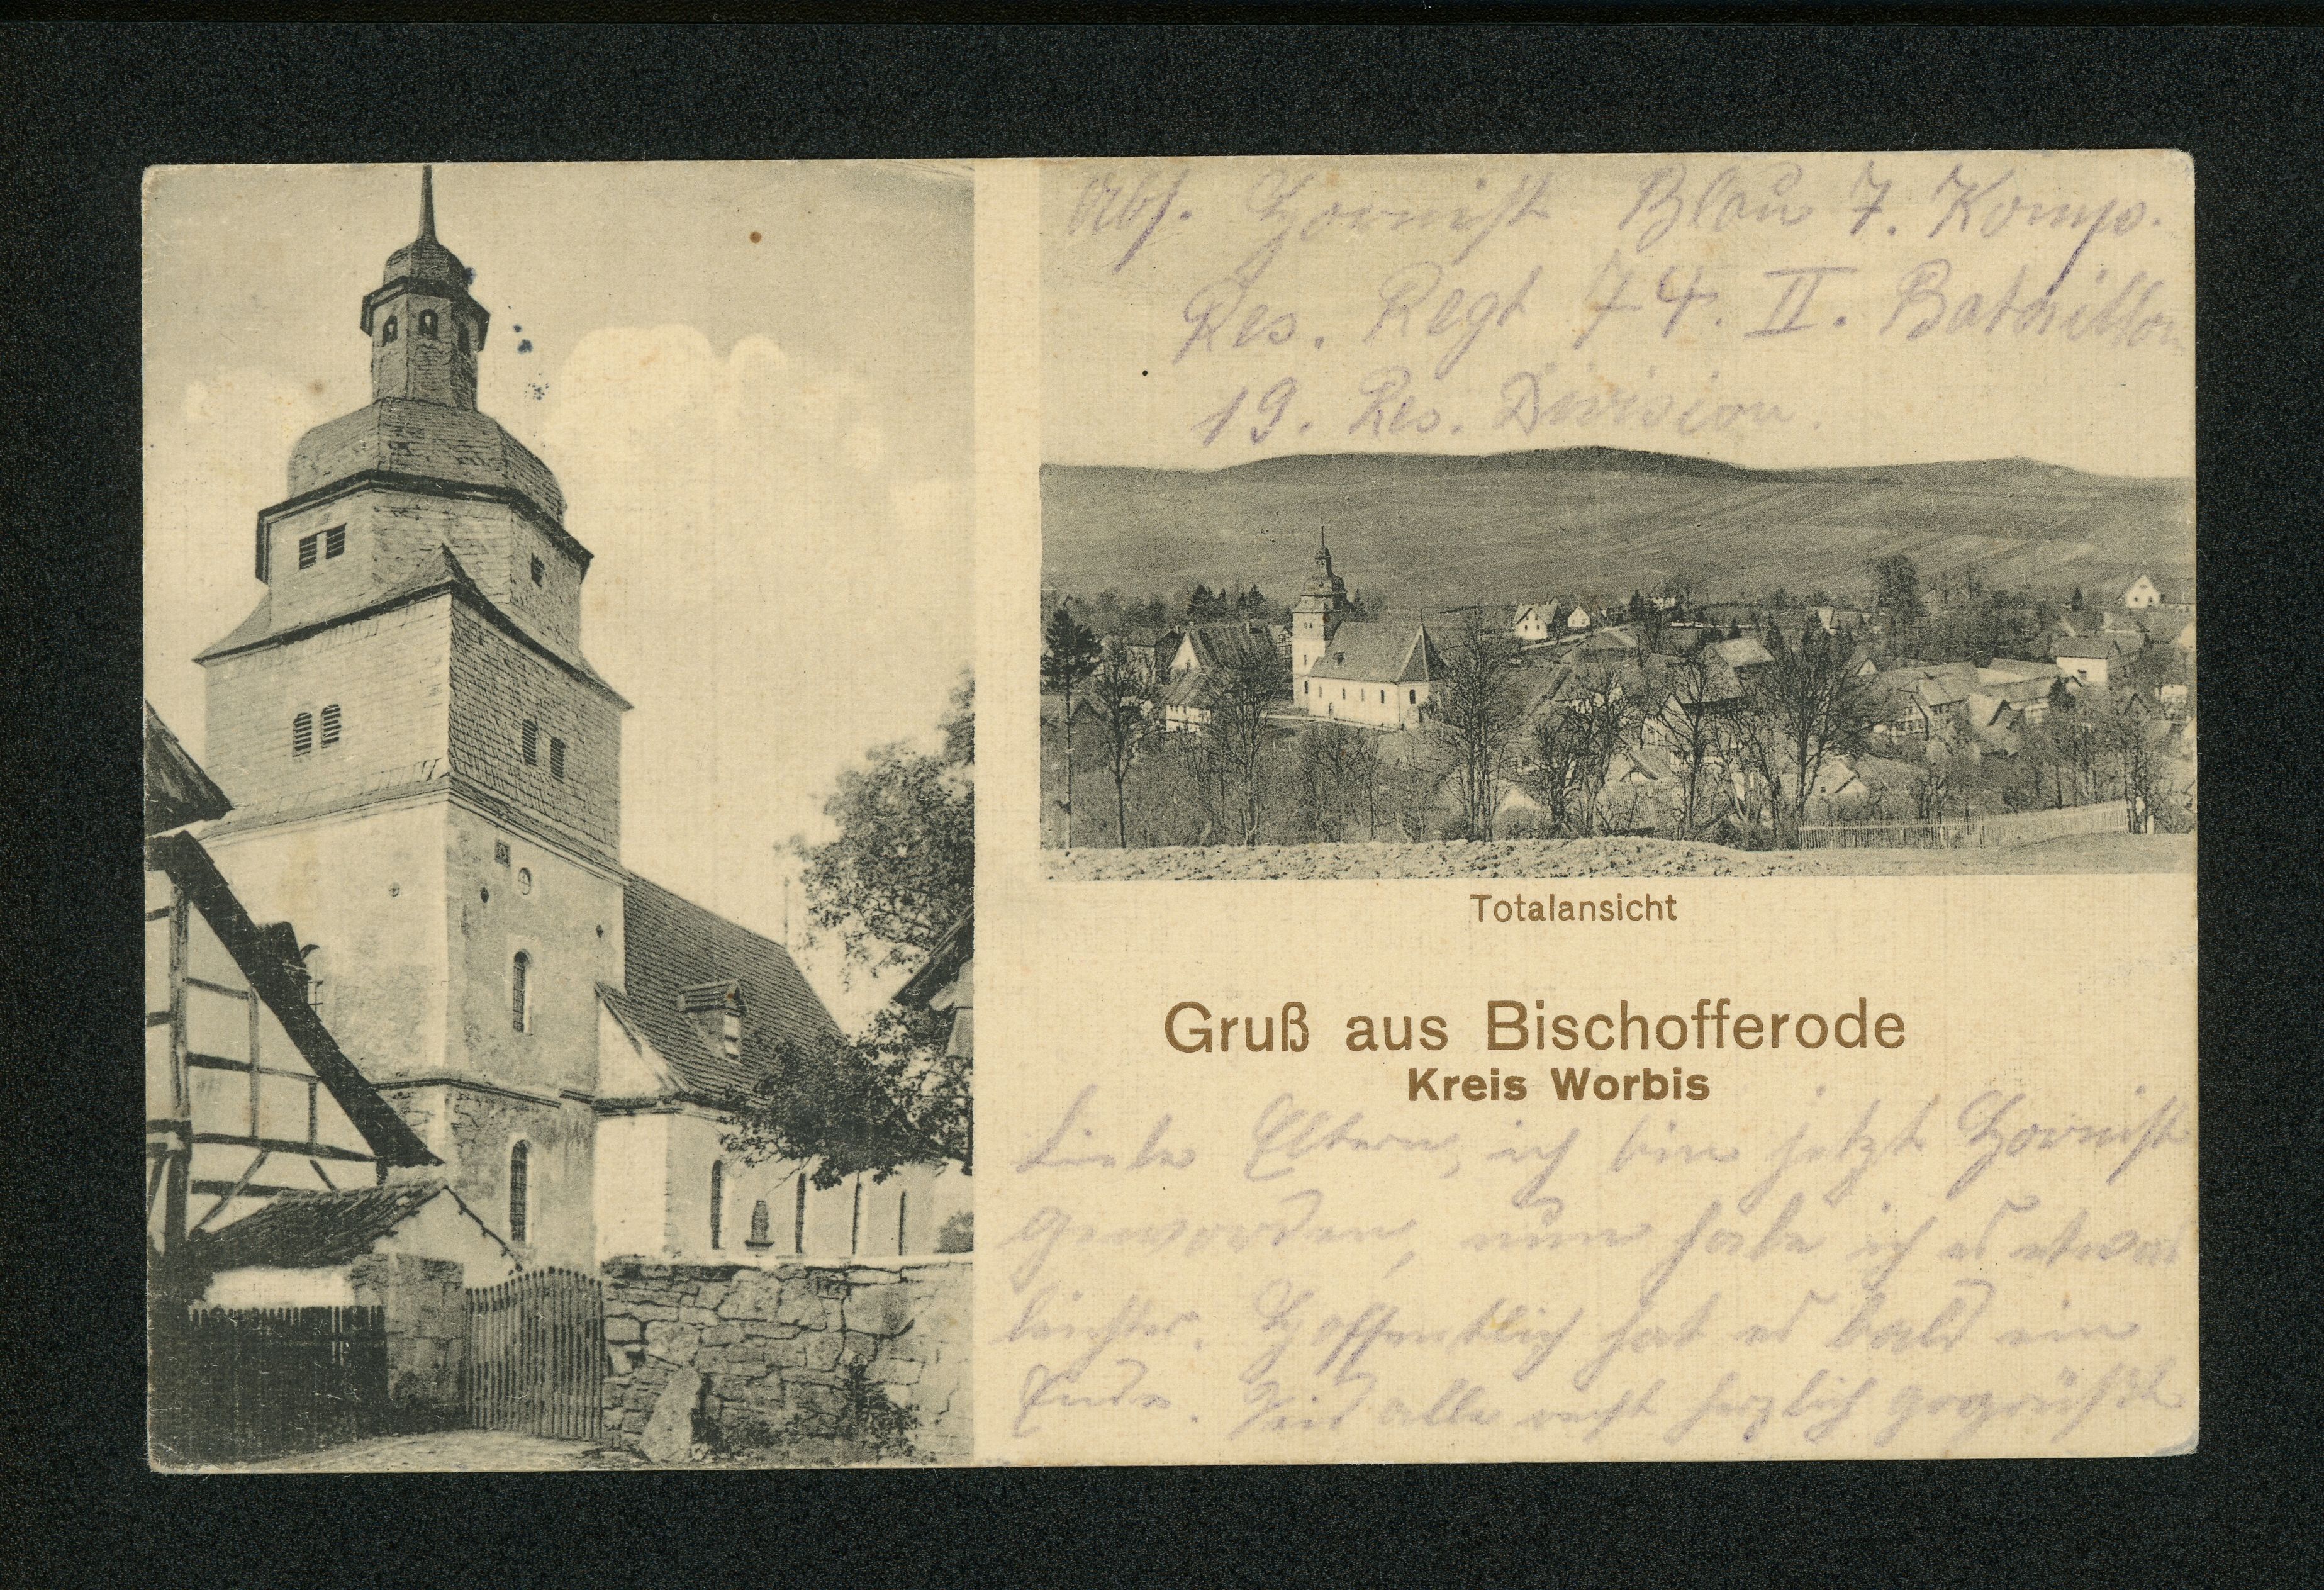 Abs. Hornist Blau 7. Komp.
Res. Regt 74. II. Bataillon
19. Res. Division.
Totalansicht
Gruß aus Bischofferode
Kreis Worbis
Liebe Eltern, ich bin jetzt Hornist
geworden, nun habe ich es etwas
leichter. Hoffentlich hat es bald ein
Ende. Seid alle recht herzlich gegrüßt